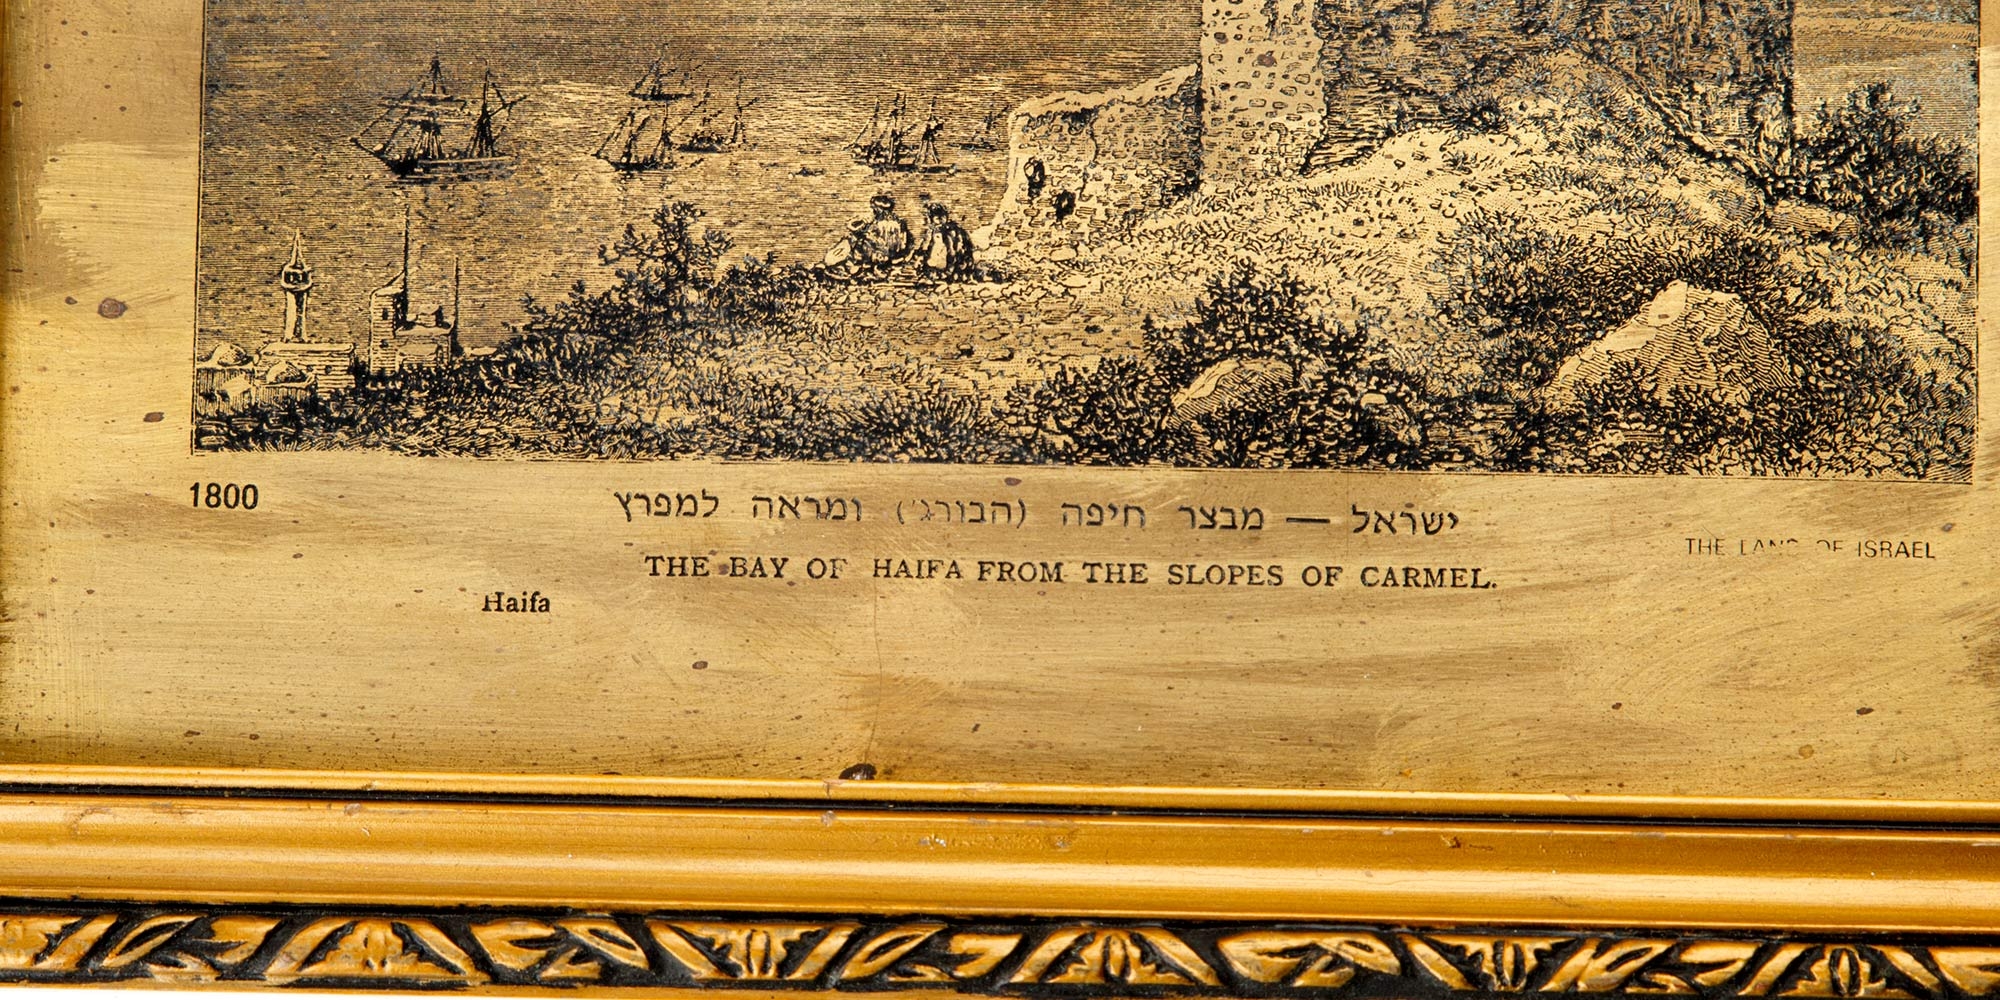 1800
ישראל — מבצר חיפה (הבורג') ומראה למפרץ
THE LAND OF ISRAEL
THE BAY OF HAIFA FROM THE SLOPES OF CARMEL.
Haifa